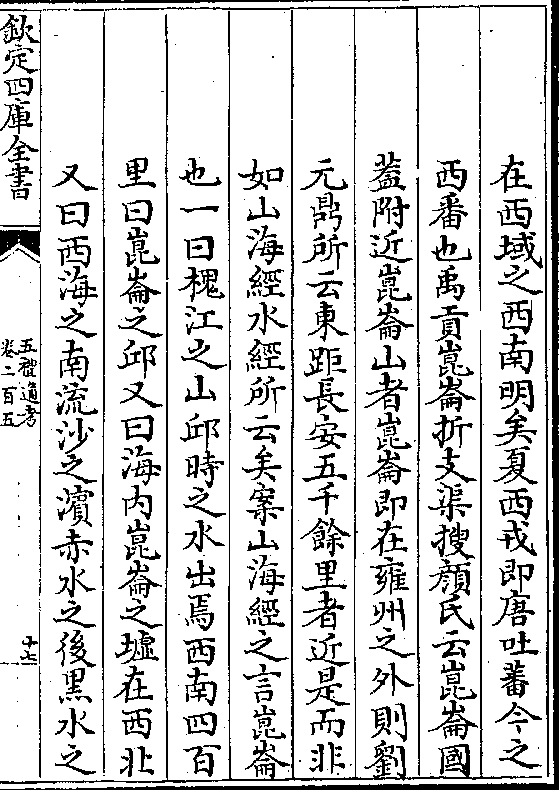 在西域之西南明矣夏西戎即唐吐蕃今之
西番也禹貢崑崙折支渠搜顔氏云崑崙國
葢附近崑崙山者崑崙即在雍州之外則劉
元鼎所云東距長安五千餘里者近是而非
如山海經水經所云矣案山海經之言崑崙
也一曰槐江之山邱時之水出焉西南四百
里曰崑崙之邱又曰海内崑崙之墟在西北
又曰西海之南流沙之濱赤水之後黑水之
欽定四庫全書
五禮通考
卷二百五
十七